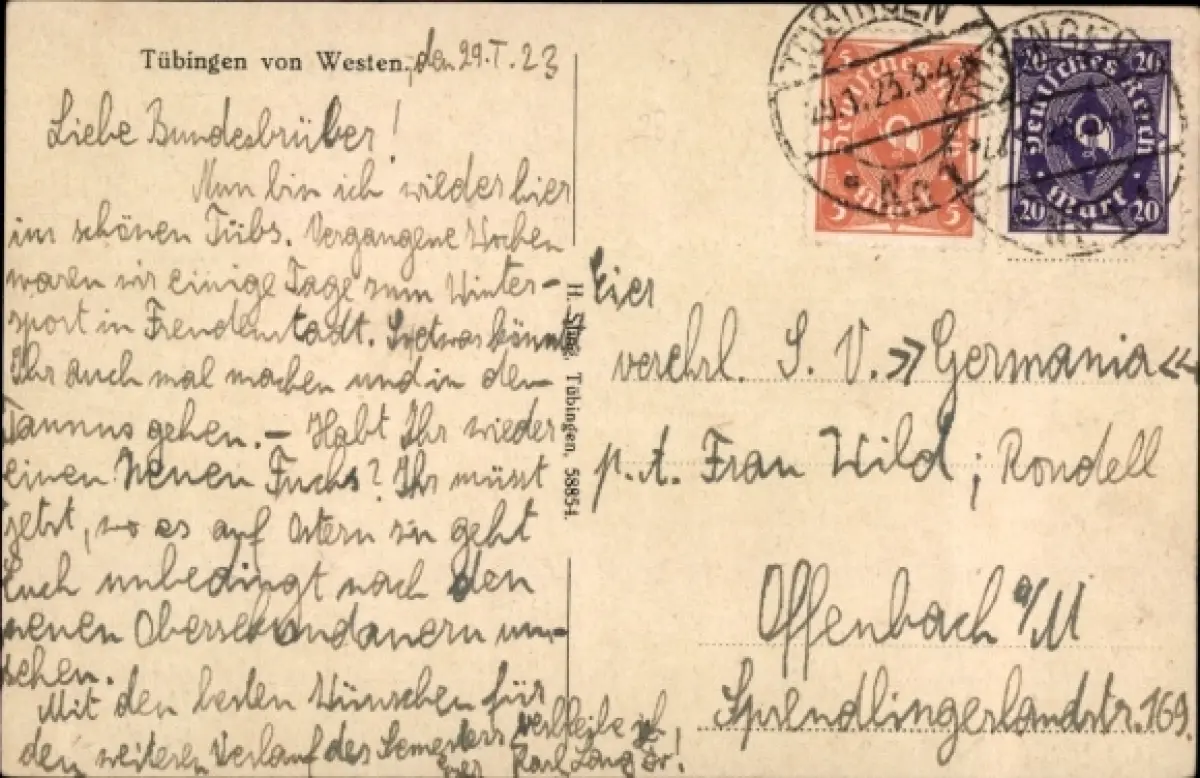 Tübingen von Westen, den 29.I.23
Liebe Bundesbrüder!
Nun bin ich wieder hier
im schönen Tübs. Vergangene Wochen
waren wir einige Tage zum Winter-
sport in Freudenstadt. So etwas könnt
Ihr auch mal machen und in den
Taunus gehen. – Habt Ihr wieder
einen neuen Fuchs? Ihr müsst
jetzt, wo es auf Ostern zu geht
Euch unbedingt nach den
neuen Obersekundanern um-
sehen.
Mit den besten Wünschen für
den weiteren Verlauf des Semesters verbleibe ich,
Euer Karl Lang
H. Sting, Tübingen. 58854.
TÜBINGEN
29.1.23.3-4
TÜBINGEN
5 5
Deutsches Reich
5 Mark 5
20 20
Deutsches Reich
20 Mark 20
verehrl. S. V. »Germania«
p. A. Frau Wild, Rondell
Offenbach a/M
Sprendlingerlandstr. 169.